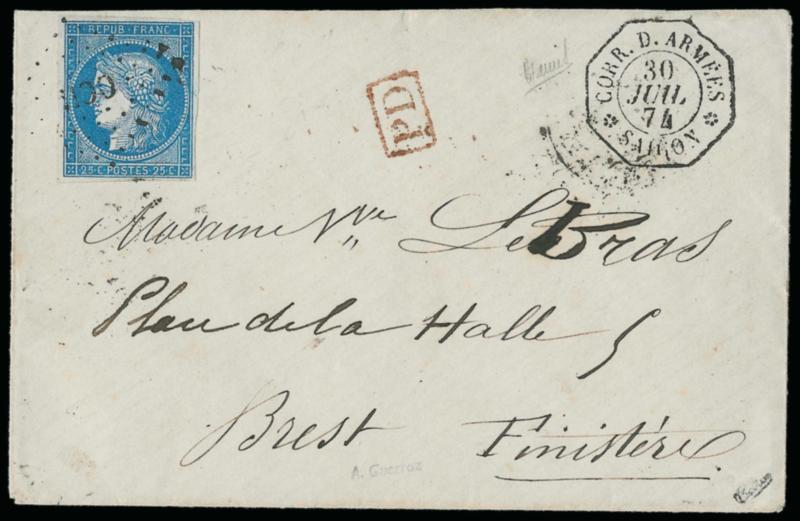 REPUB. FRANC.
25.C POSTES 25.C
PD
CORR. D. ARMÉES
30
JUIL
74
SAIGON
Madame Vve Le Bras
Place de la Halle 5
Brest Finistère
A. Guerraz